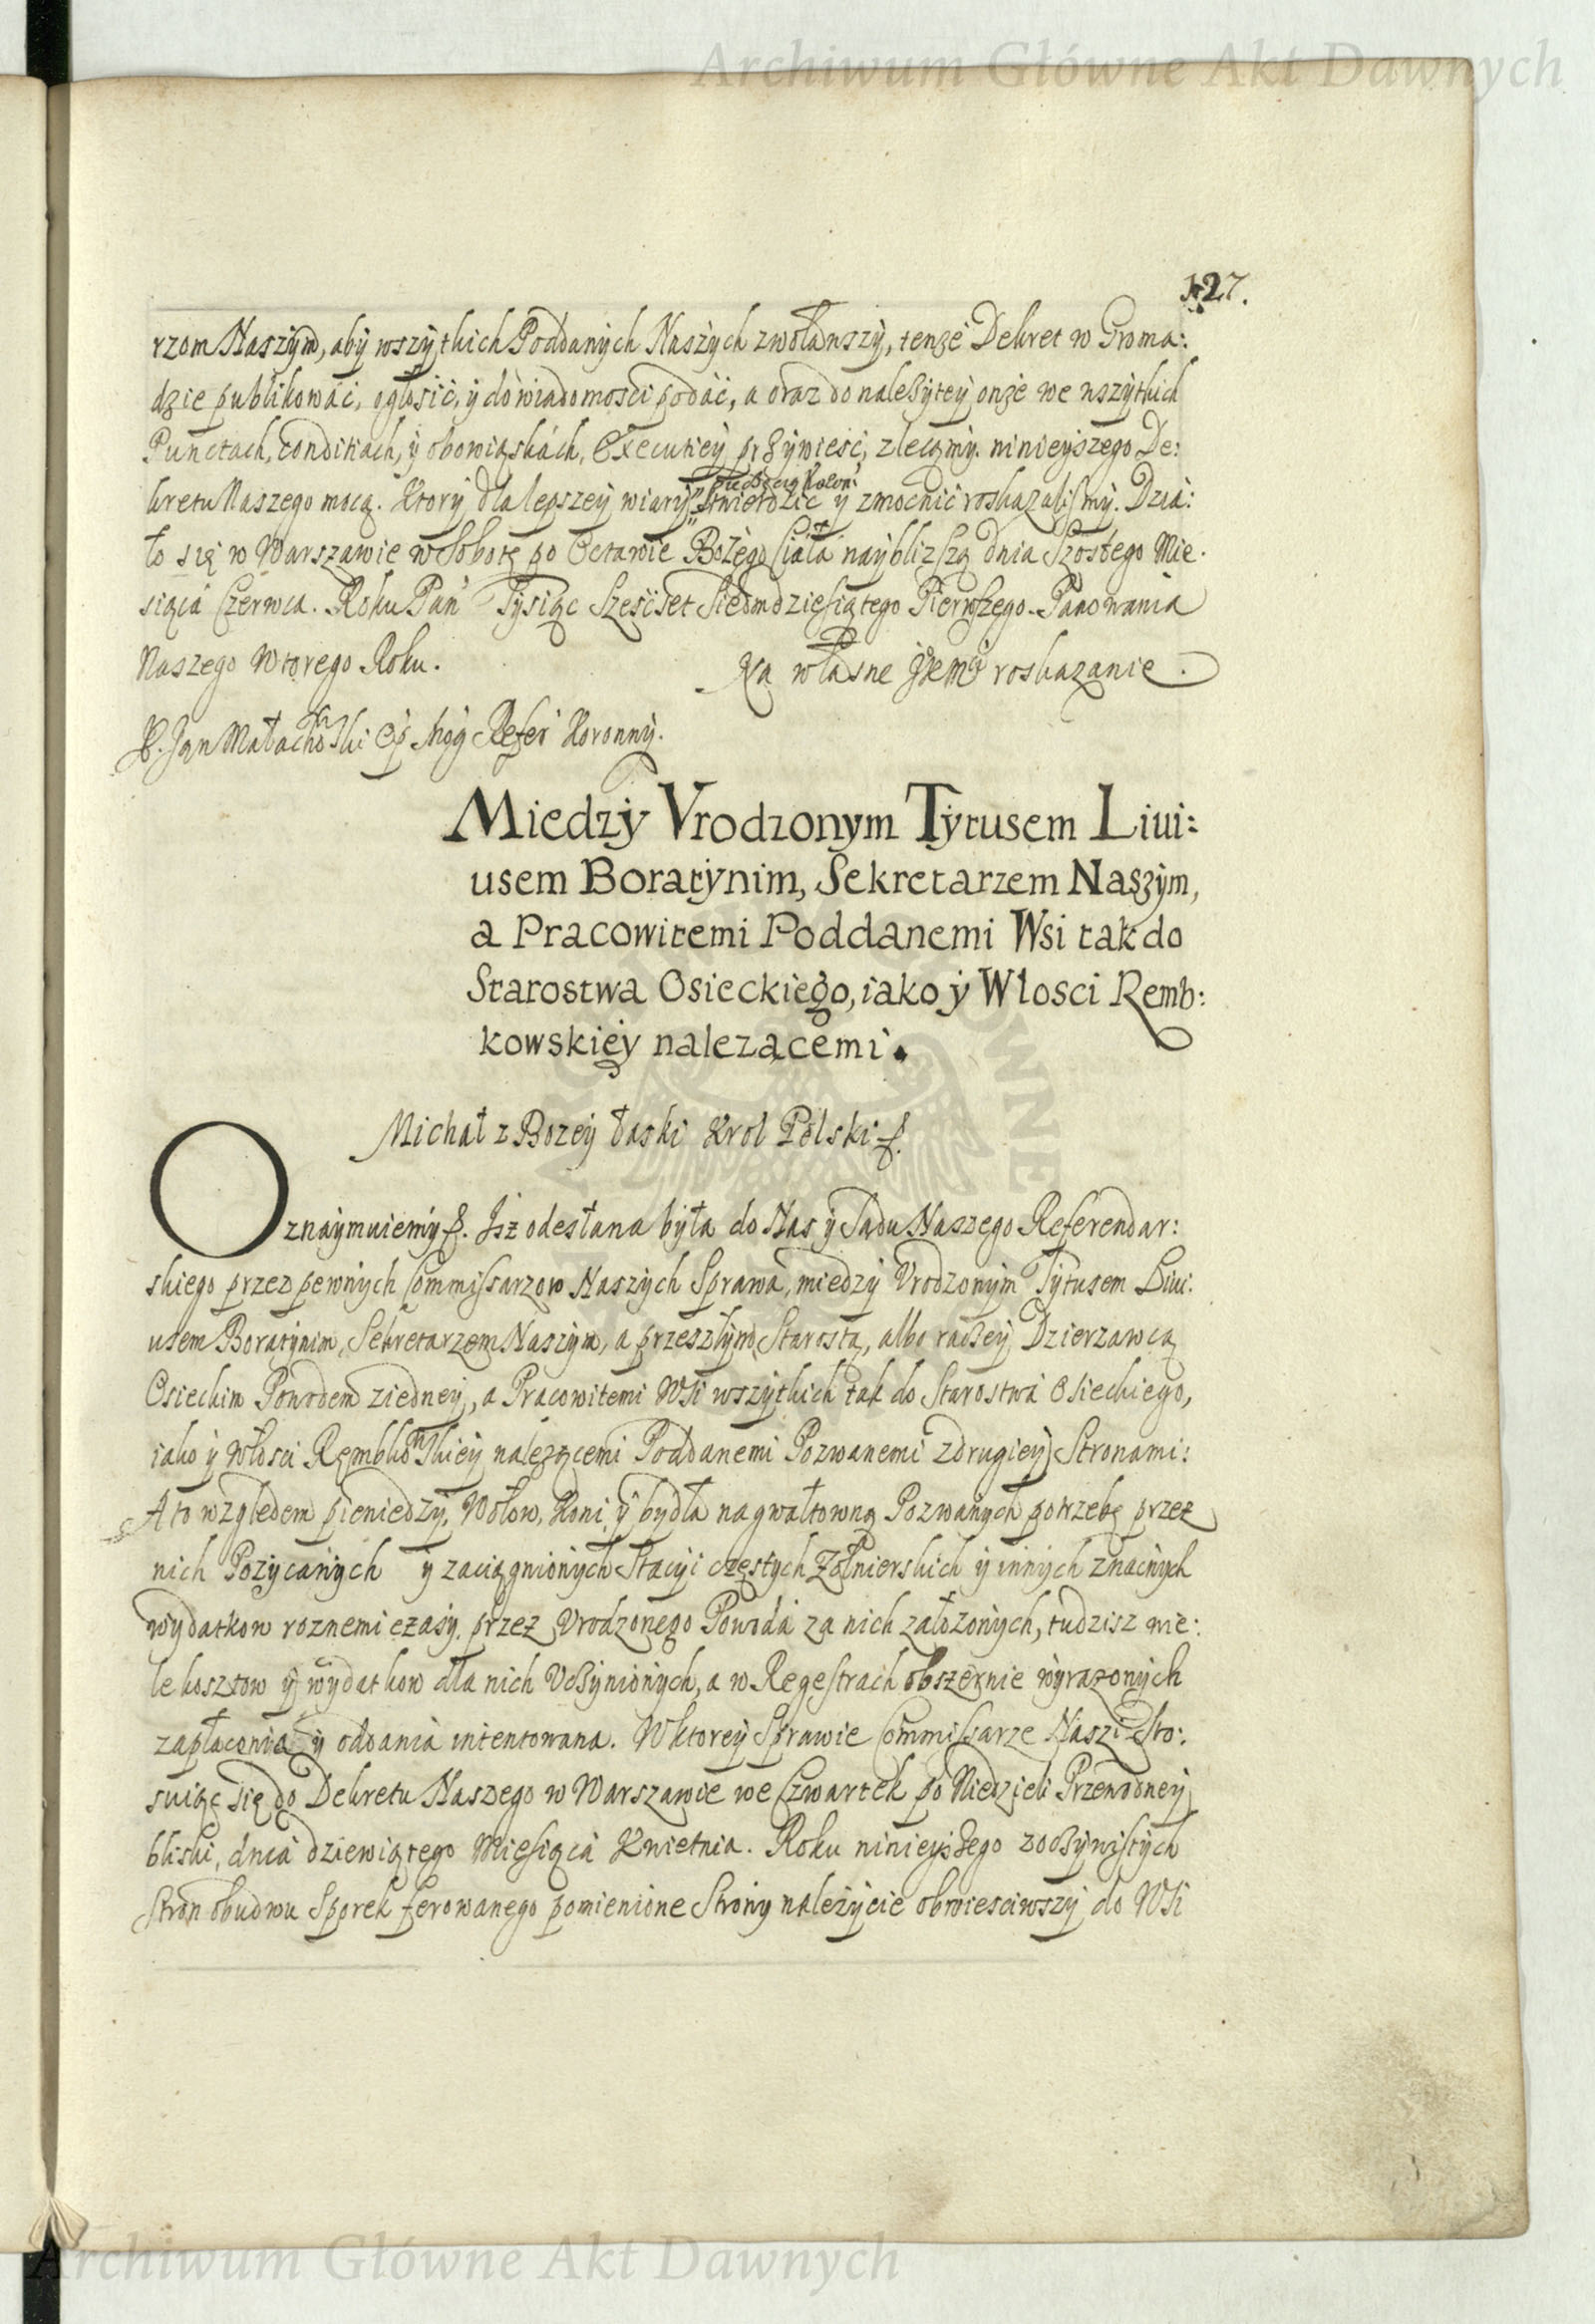 Archiwum Główne Akt Dawnych
127.
rzom Naszym, aby wszytkich Poddanych Naszych zwoławszy, tenże Dekret w Groma:
dzie publikować, ogłosić, y do wiadomosci podać, a oraz do należytey onże we wszytkich
Punctach, Conditiach, y obowiąskach, Executiey przywieść, zleczmy. ninieyszego De:
kretu Naszego mocą. Ktory dla lepszey wiary stwierdzić y zmocnić roskazalismy. Dzia:
ło się w Warszawie w Sobotę po Octawie Bożego Ciała naybliższą dnia Szostego Mie.
siąca Czerwca. Roku Pań Tysiąc Sześćset Siedmdziesiątego Pierwszego. Panowania
Naszego Wtorego Roku. Na własne JKMći roskazanie.
X. Jan Małachowski Ep Referẽ Koronny.
Miedzy Vrodzonym Tytusem Liui:
usem Boratynim, Sekretarzem Naszym,
a Pracowitemi Poddanemi Wsi tak do
Starostwa Osieckiego, iako y Włosci Remb:
kowskiey nalezącemi.
Michał z Bozey łaski Krol Polski &.
Oznaymuiemy &. Isz odesłana była do Nas y Sądu Naszego Referendar:
skiego przez pewnych Commissarzow Naszych Sprawa, miedzy Vrodzonym Tytusem Liui:
usem Boratynim, Sekretarzem Naszym, a przeszłym Starostą, albo raczey Dzierzawcą
Osieckim Powodem z iedney, a Pracowitemi Wsi wszytkich tak do Starostwa Osieckiego,
iako y Włosci Rembkowskiey należącemi Poddanemi Pozwanemi z drugiey Stronami:
A to względem pieniedzy, Wołow, Koni, y bydła na gwałtowną Pozwanych potrzebę przez
nich Pozycanych y zaciągnionych Stacyi częstych Żołnierskich y innych znacnych
wydatkow roznemi czasy, przez Vrodzonego Powoda za nich załozonych, tudzisz wie:
le kosztow y wydatkow dla nich Vczynionych, a w Regestrach obszernie wyrazonych
zapłacenia y oddania intentowana. W ktorey Sprawie Commissarze Naszi Sto:
suiąc się do Dekretu Naszego w Warszawie we Czwartek po Niedzieli Przewodney
bliski, dnia dziewiątego Miesiąca Kwietnia. Roku ninieyszego z oczywistych
Stron obudwu Sporek ferowanego pomienione Strony należycie obwiesciwszy do Wsi
Archiwum Główne Akt Dawnych